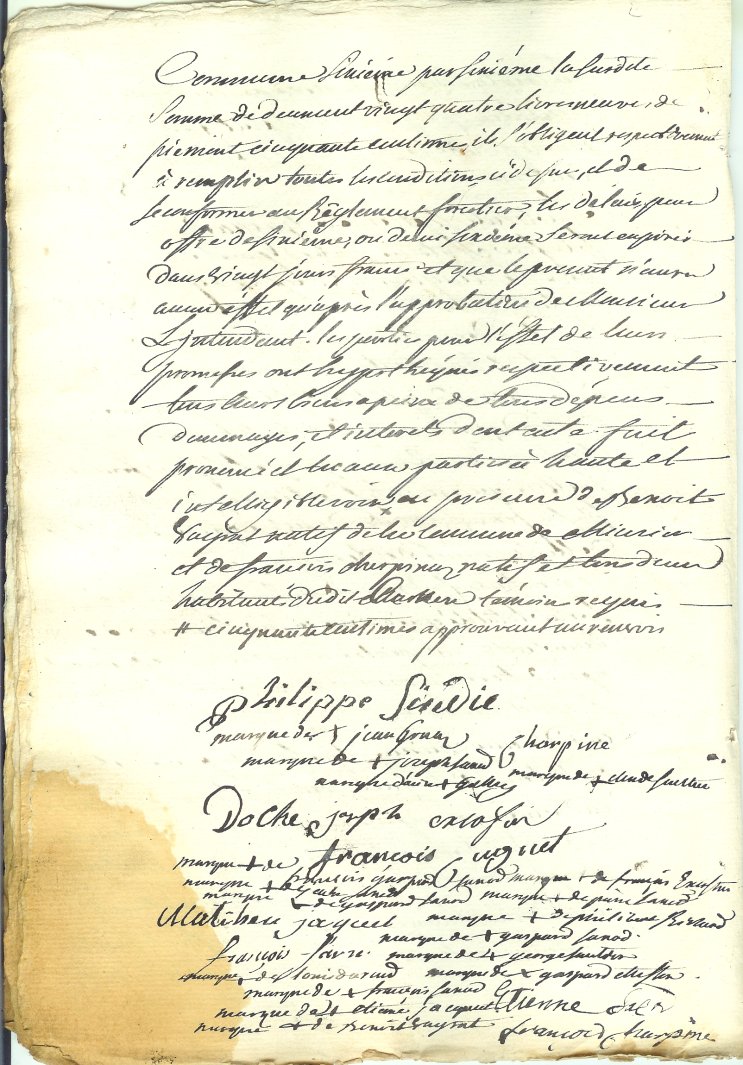 Commune sixième par sixième la susdite
Somme de deux cent vingt quatre livres neuves de
piemont cinquante centimes, ils s'obligent respectivement
à remplir toutes les conditions ci dessus, et de
se conformer au Règlement forestier, les délais pour
offre de sixième, ou demi sixième seront expirés
dans vingt jours francs et que le present n'aura
aucun effet qu'après l'approbation de Monsieur
L'intendant. les parties pour l'effet de leurs
promesses ont hypothéqués respectivement
tous leurs biens a peine de tous dépens
dommages, et interets dont acte fait
prononcé et lu aux parties à haute et
intelligible voix en presence de Benoit
Vuyrat natif de la commune de
et de francois charpine natif et tous deux
habitants dudit temoin requis
# cinquante centimes approuvant au renvois
Philippe
marque de + jean
marque de + joseph Sanod Charpine
marque de + marque de + claude
Doche joseph
marque + de françois uguet
marque + de marque + de françois
marque + de gaspard Sanod marque + de pierre Sanod
Mathieu jaquet marque + de philippe
marque de + gaspard Sanod
françois favre marque de + george
marque + de louis marque de + gaspard
marque de + francois Sanod
marque de + jacquet Etienne
marque + de Benoit Vuyrat françois charpine